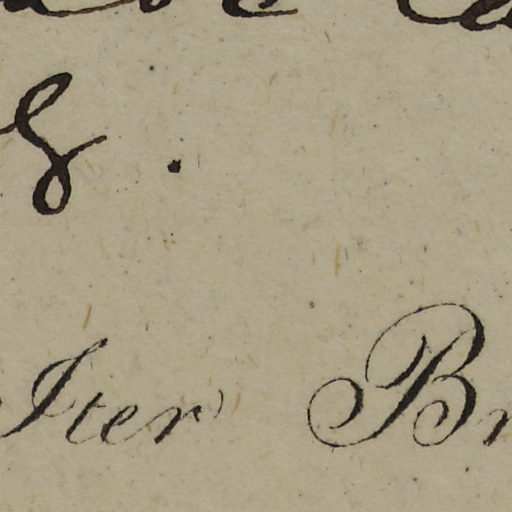 8.
Iter Br